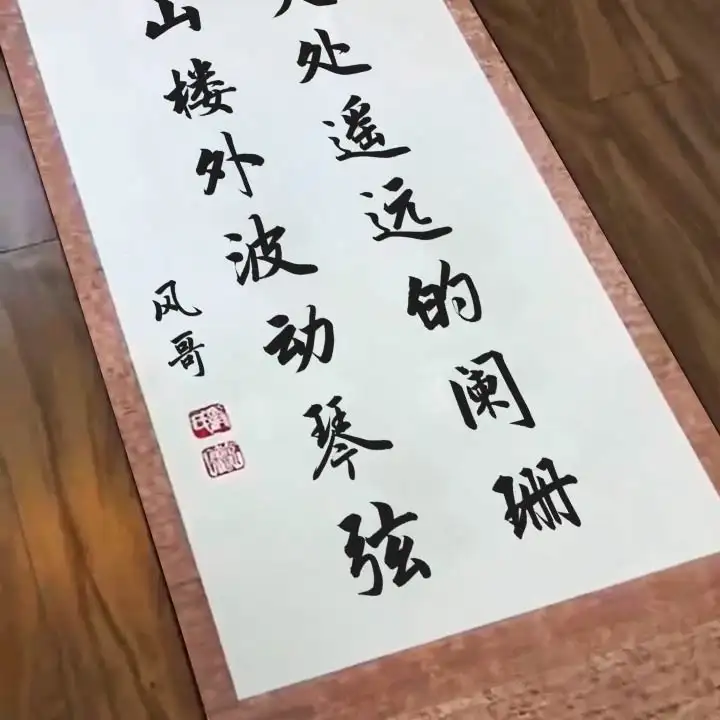 处遥远的阑珊
山楼外波动琴弦
风哥